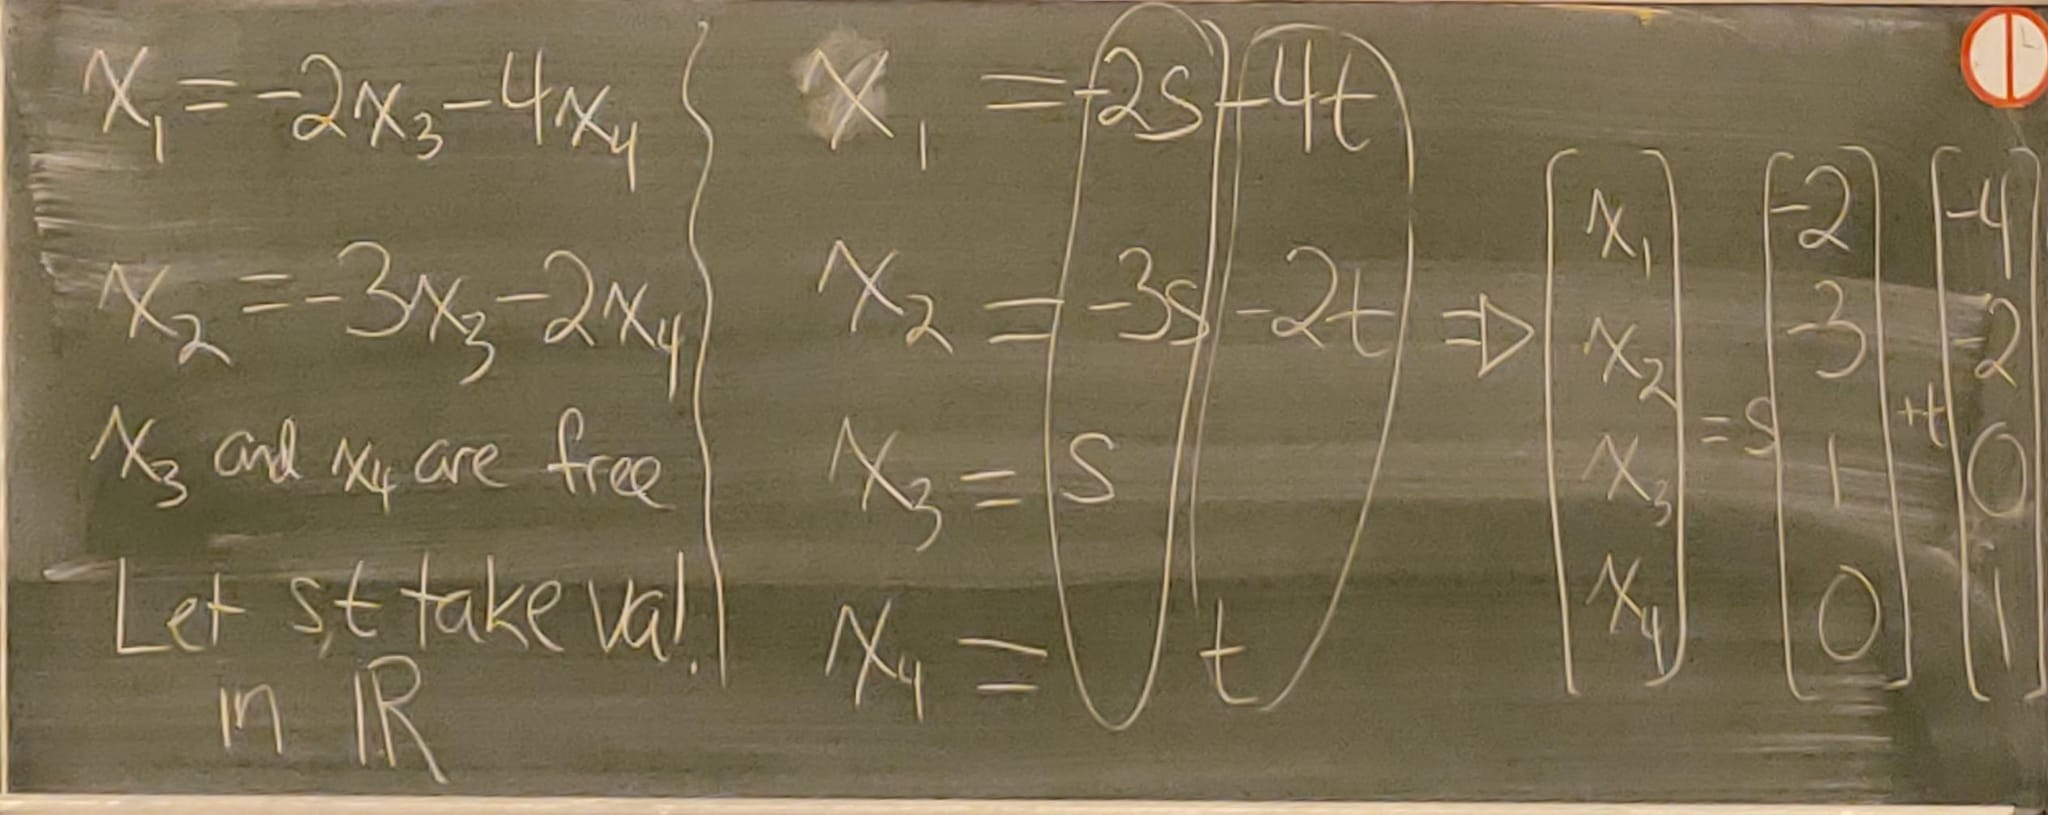 x₁ = -2x₃ - 4x₄
x₂ = -3x₃ - 2x₄
x₃ and x₄ are free
Let s,t take val.
in ℝ
x₁ = -2s -4t
x₂ = -3s -2t
x₃ = s
x₄ = t
⇒ [x₁ x₂ x₃ x₄] = s [-2 -3 1 0] + t [-4 -2 0 1]